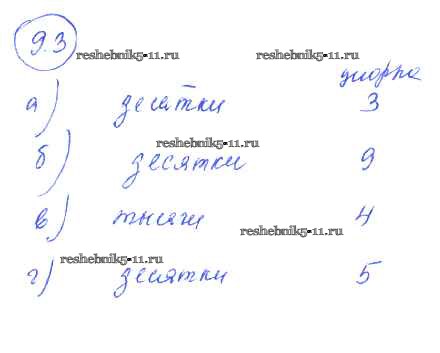 9.3
reshebnik5-11.ru reshebnik5-11.ru
цифра
а) десятки 3
reshebnik5-11.ru
б) десятки 9
в) тысячи 4
reshebnik5-11.ru
reshebnik5-11.ru
г) десятки 5